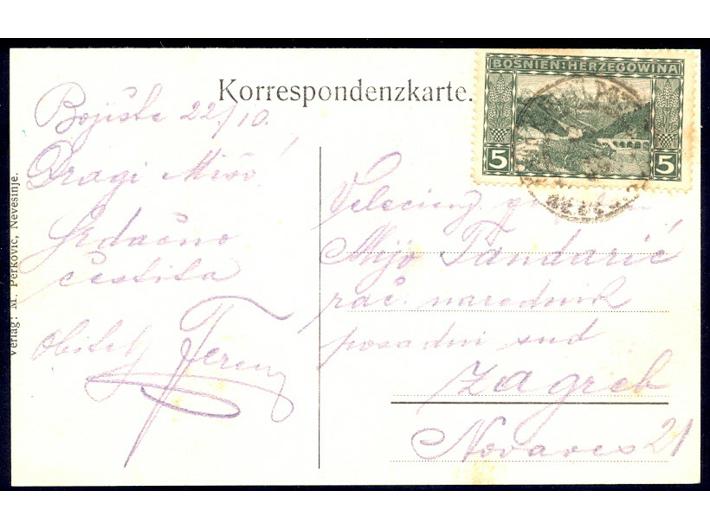 Korrespondenzkarte.
BOSNIEN:HERZEGOWINA
5 5
Bojište 22/10.
Dragi Mišo!
Srdačno
čestita
obitelj Ferenz
Velecienj
Mijo Tandarić
rač. narednik
posadni sud
Zagreb
Novaves 21
Verlag: M. Perković, Nevesinje.